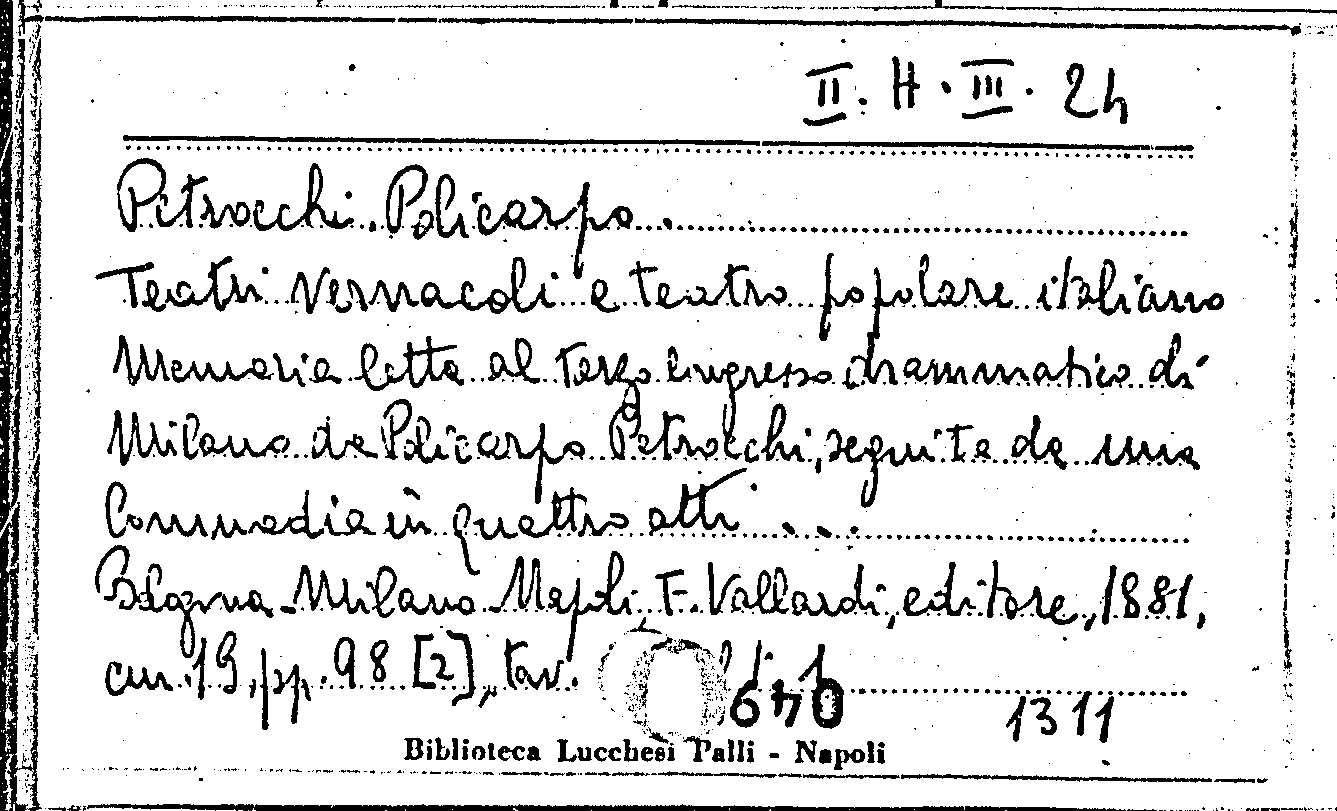 II. H. III. 24
Petrocchi Policarpo.
Teatri vernacoli e teatro popolare italiano
Memoria letta al terzo Congresso drammatico di
Milano da Policarpo Petrocchi, seguita da una
Commedia in quattro atti ...
Bologna-Milano-Napoli, F. Vallardi, editore, 1881,
cm. 19, pp. 98 [2], tav.
049
1311
Biblioteca Lucchesi Palli - Napoli